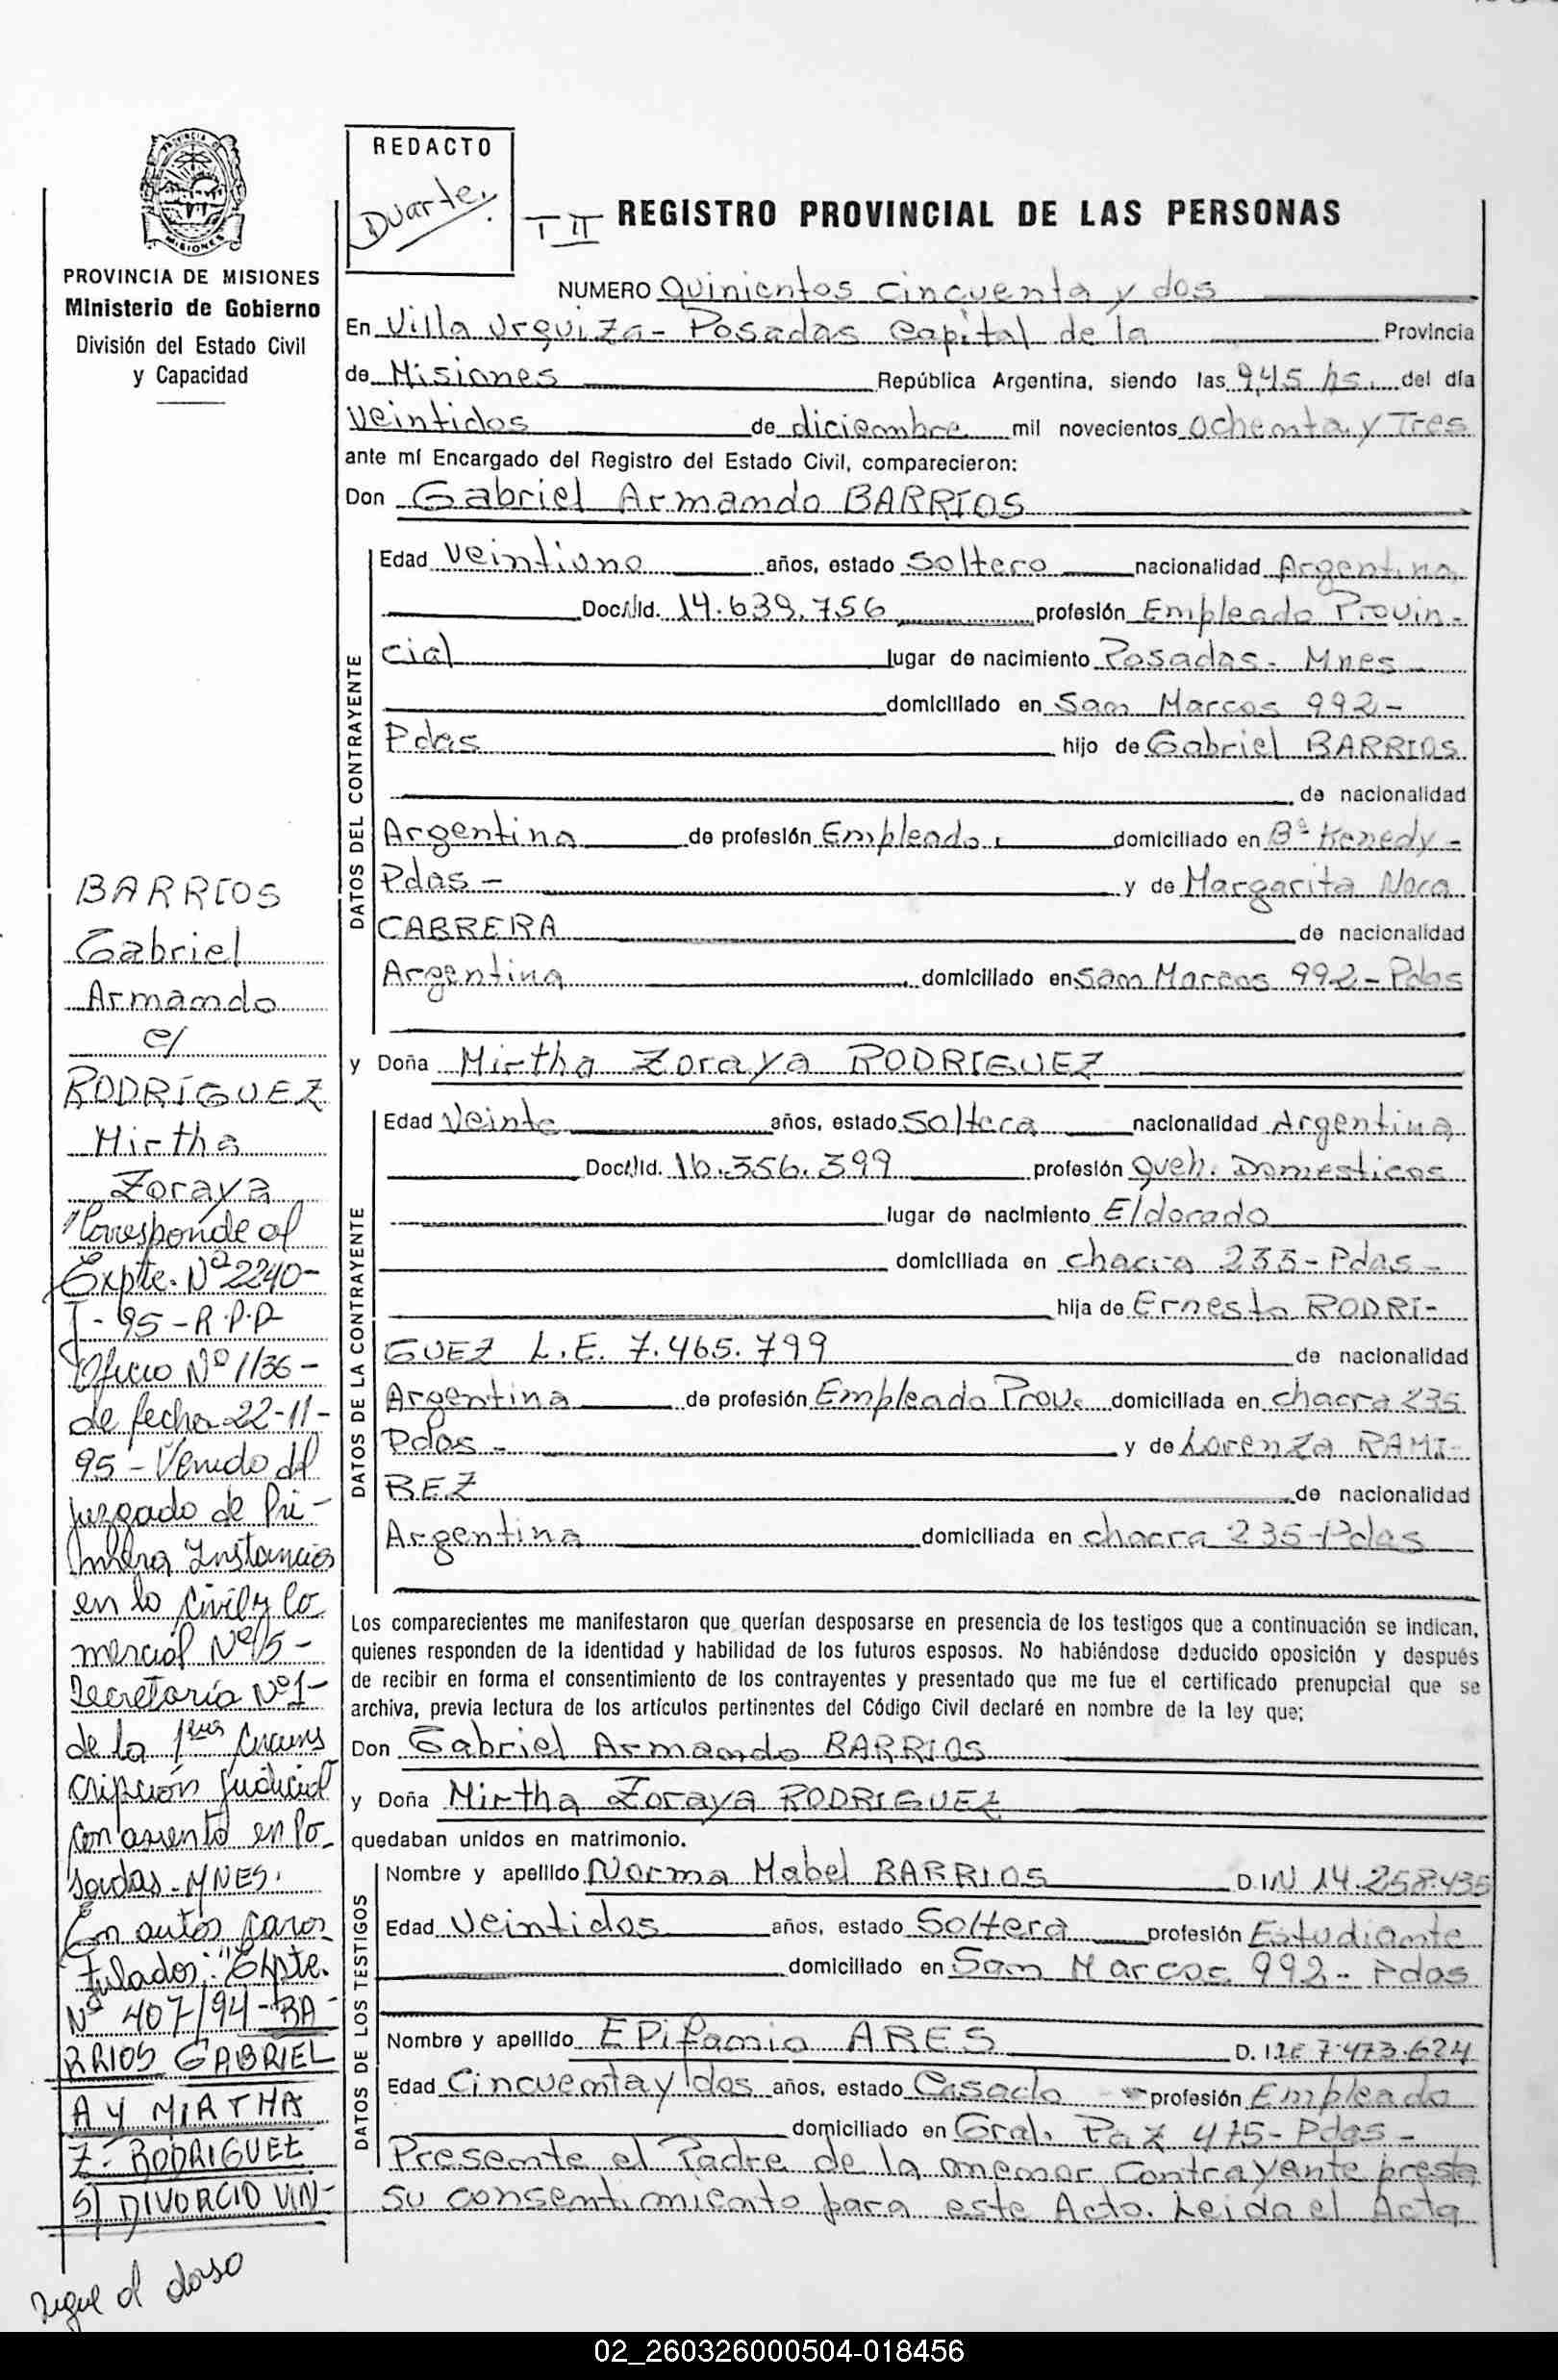 REDACTO
Duarte
PROVINCIA DE MISIONES
PROVINCIA DE MISIONES
Ministerio de Gobierno
División del Estado Civil
y Capacidad
T II REGISTRO PROVINCIAL DE LAS PERSONAS
NUMERO Quinientos cincuenta y dos
En Villa Urquiza - Posadas Capital de la Provincia
de Misiones República Argentina, siendo las 9,45 hs. del día
Veintidos de diciembre mil novecientos Ochenta y Tres
ante mí Encargado del Registro del Estado Civil, comparecieron:
Don Gabriel Armando BARRIOS
DATOS DEL CONTRAYENTE
Edad Veintiuno años, estado Soltero nacionalidad Argentina
Doc. Id. 14.639.756 profesión Empleado Provin-
cial lugar de nacimiento Posadas - Mnes
domiciliado en San Marcos 992 -
Pdas hijo de Gabriel BARRIOS
de nacionalidad
Argentina de profesión Empleado domiciliado en Bº Kenedy -
Pdas - y de Margarita Nora
CABRERA de nacionalidad
Argentina domiciliado en San Marcos 992 - Pdas
y Doña Mirtha Zoraya RODRIGUEZ
DATOS DE LA CONTRAYENTE
Edad Veinte años, estado Soltera nacionalidad Argentina
Doc. Id. 16.356.399 profesión Queh. Domesticos
lugar de nacimiento Eldorado
domiciliada en chacra 235 - Pdas -
hija de Ernesto RODRI-
GUEZ L.E. 7.465.799 de nacionalidad
Argentina de profesión Empleado Prov. domiciliada en chacra 235
Pdas - y de Lorenza RAMI-
REZ de nacionalidad
Argentina domiciliada en chacra 235 - Pdas
Los comparecientes me manifestaron que querían desposarse en presencia de los testigos que a continuación se indican,
quienes responden de la identidad y habilidad de los futuros esposos. No habiéndose deducido oposición y después
de recibir en forma el consentimiento de los contrayentes y presentado que me fue el certificado prenupcial que se
archiva, previa lectura de los artículos pertinentes del Código Civil declaré en nombre de la ley que;
Don Gabriel Armando BARRIOS
y Doña Mirtha Zoraya RODRIGUEZ
quedaban unidos en matrimonio.
DATOS DE LOS TESTIGOS
Nombre y apellido Norma Mabel BARRIOS D.I.N 14.258.435
Edad Veintidos años, estado Soltera profesión Estudiante
domiciliado en San Marcos 992 - Pdas
Nombre y apellido EPifanio ARES D. I LE 7.473.624
Edad Cincuenta y dos años, estado Casado profesión Empleado
domiciliado en Gral. Paz 475 - Pdas -
Presente el Padre de la menor contrayente presta
su consentimiento para este Acto. Leida el Acta
BARRIOS
Gabriel
Armando
c/
RODRÍGUEZ
Mirtha
Zoraya
Corresponde al
Expte. Nº 2240-
J - 95 - R.P.P
Oficio Nº 1136 -
de fecha 22-11-
95 - Venido del
juzgado de Pri-
mera Instancia
en lo Civil y Co
mercial Nº 5 -
Secretaría Nº 1 -
de la 1era Circuns
cripción Judicial
con asiento en Po-
sadas - MNES.
En autos cara-
tulados: "Expte.
Nº 407/94 - BA-
RRIOS GABRIEL
A Y MIRTHA
Z. RODRIGUEZ
S/ DIVORCIO VIN-
sigue al dorso
02_260326000504-018456